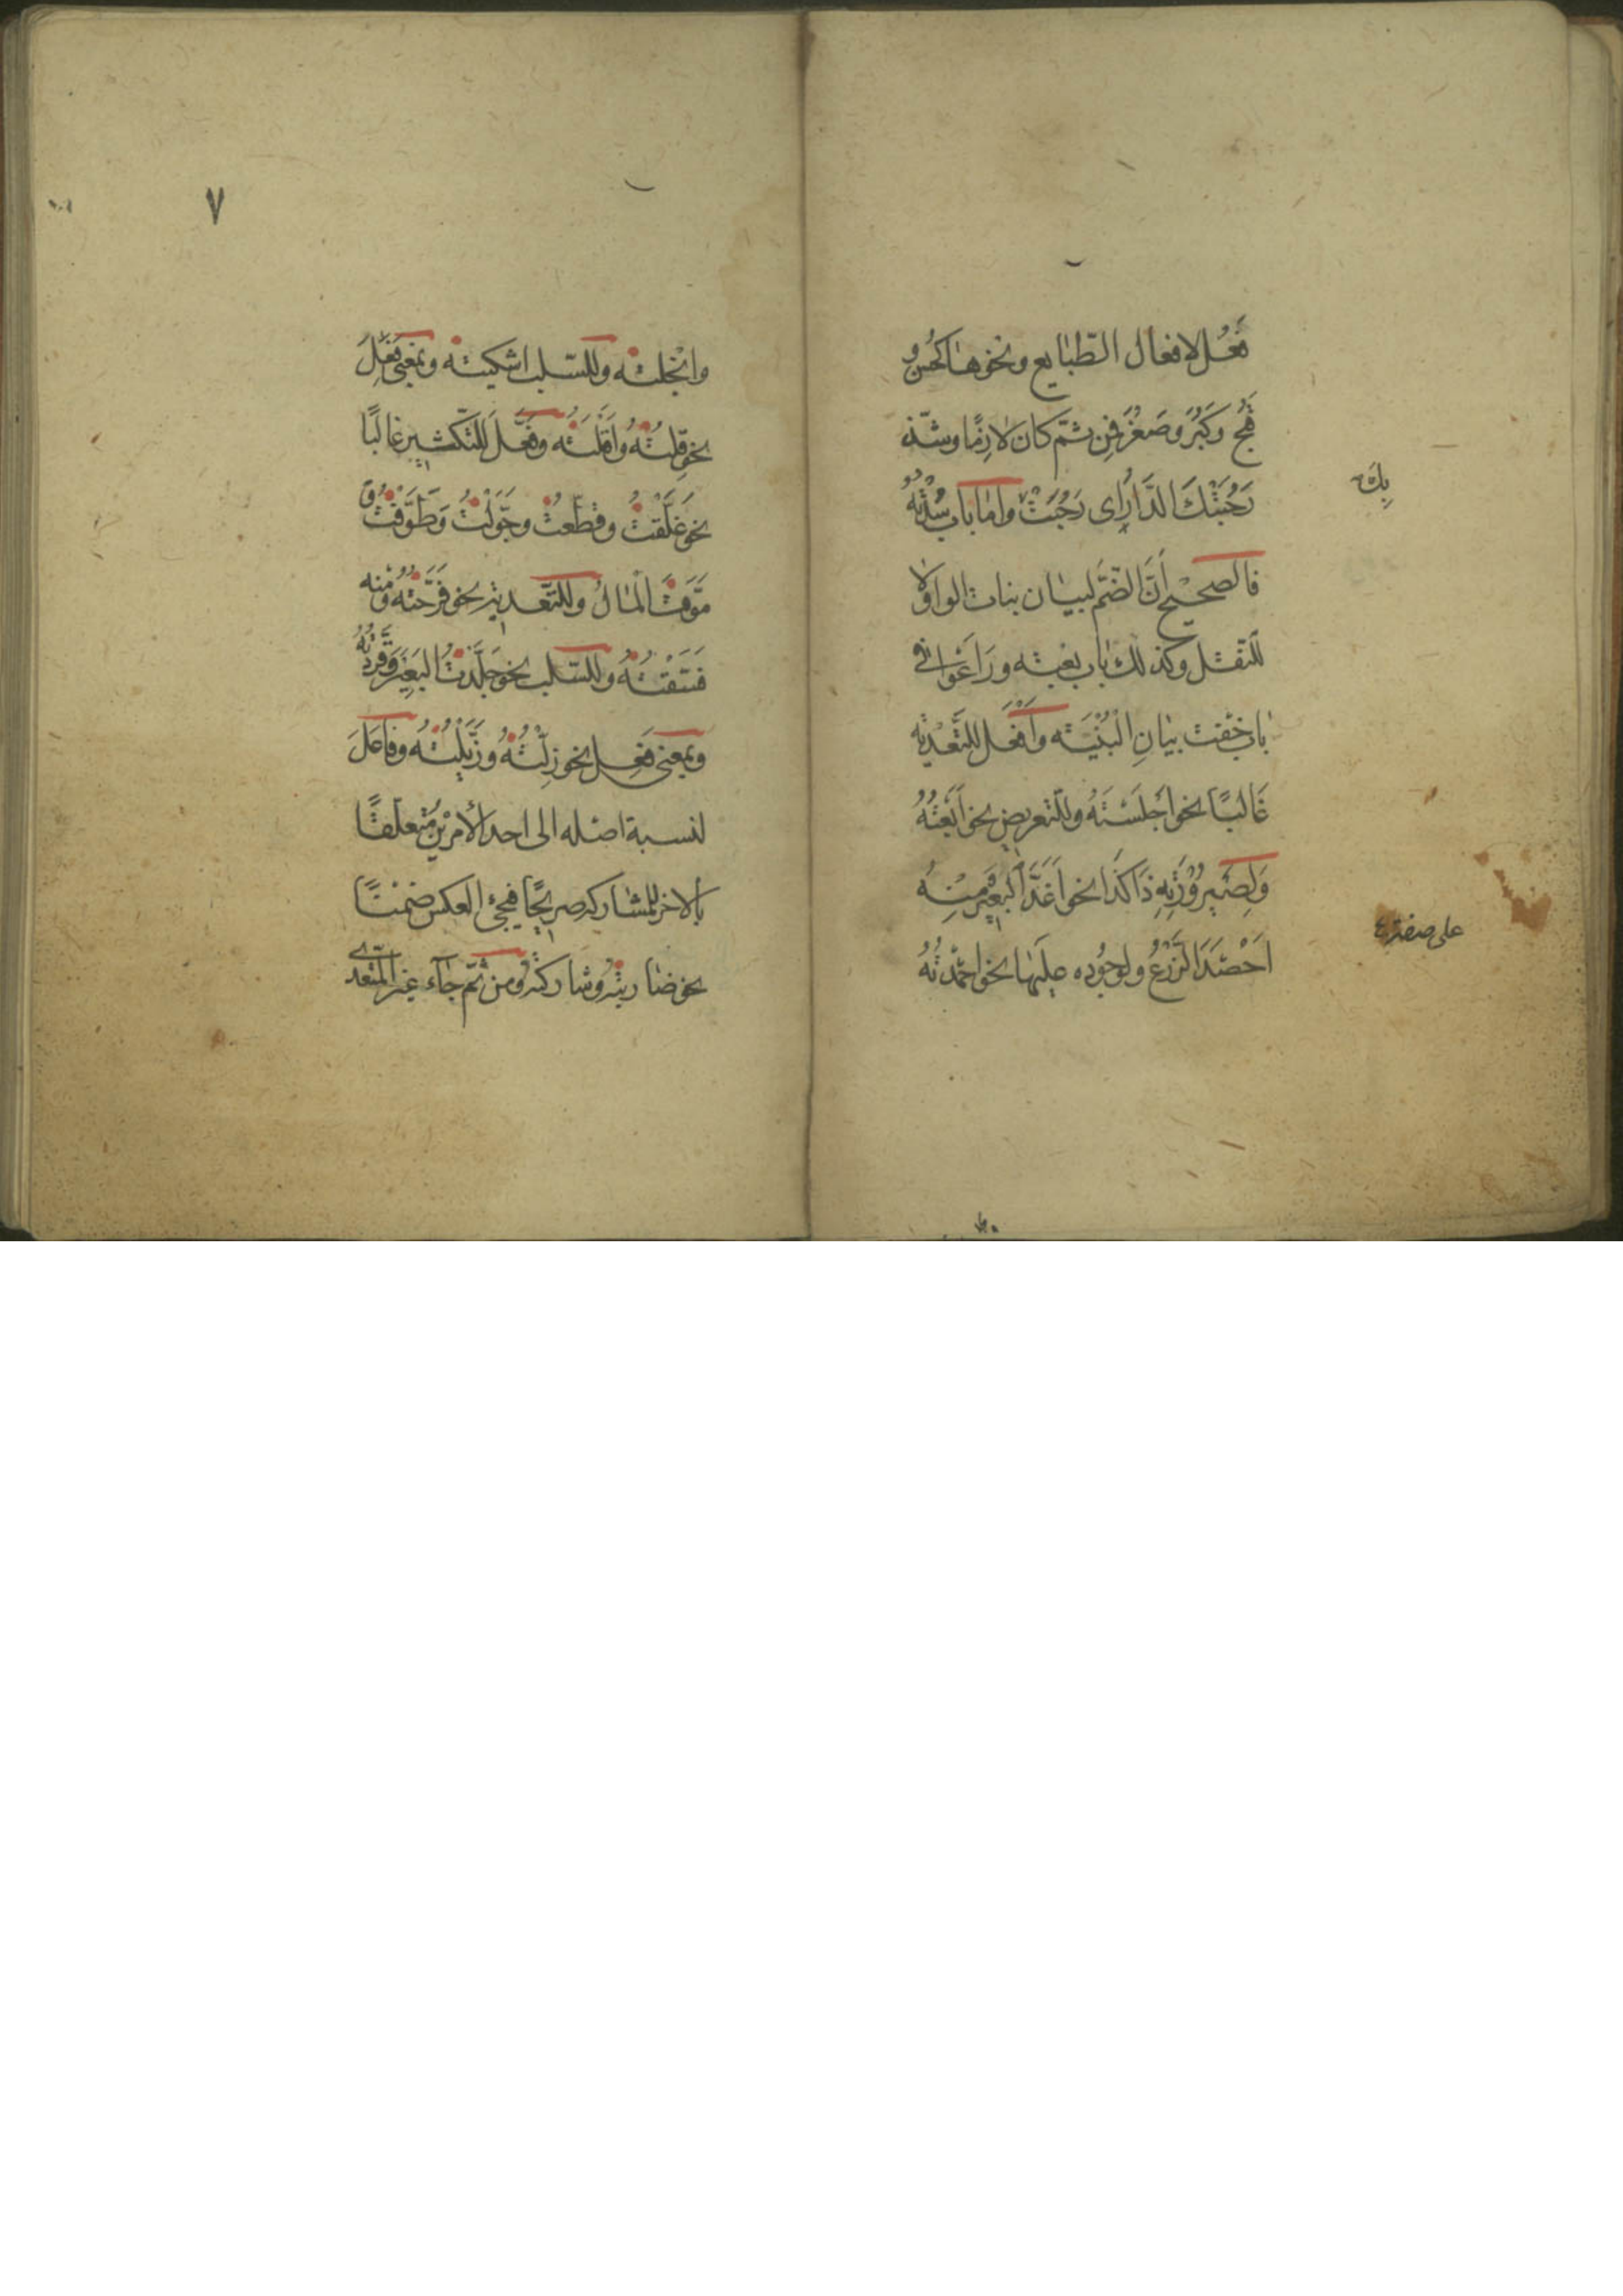 فَعُل لافعال الطّبايع ونحوها كحُسن و
قَبُح وكَبُرَ وصَغُرَ فمِن ثمّ كان لازمًا وشذّ
رَحُبَتْكَ الدَّارُ اى رَحُبَتْ وامّا باب سُدْتُهُ
بِكَ
فالصحيح اَنَّ الضَّمَّ لبيان بنات الواو لا
للنّقل وكذلك باب بعْته ورَاعَوْا فى
باب خفت بيان الْبُنْيَته واَفْعَل للتَّعْدِيَه
غَالبًا نحو اَجْلَسْتَهُ وللتّعريض نحو اَبَعْتُهُ
وَلِصَيْرُوْرَتِهِ ذَا كَذَا نحو اَغَدَّ الْبَعِيْرُ ومِنْهُ
على صفة ٤
اَحْصَدَ الزَّرْعُ ولوجُوده عليها نحو احْمَدْتُهُ
٧
وابْخَلته وللسّلب اشكيته وبمعنى فَعَلَ
نحو قِلْتُهُ واَقَلْتُه وفَعَّلَ للتّكثير غالبًا
نحو غَلَّقْتُ وقَطَّعتُ وجَوَّلْتُ وَطَوَّفْتُ و
مَوَّتَ الْمَالُ وللتّعدية نحو فَرَّحْتُه ومنه
فَسَّقْتُهُ وللسّلب نحو جَلَّدْتُ البَعِيْرَ وَقَرَّدْتُهُ
وبمعنى فَعَل نحو زِلْتُهُ وزَيَّلْتُهُ وفَاعَلَ
لنسبة اصله الى احد الأمرَيْن مُتعلّقًا
بألاخر للمشاركة صريحًا فيجئ العكس ضمْنًا
نحو ضاربْتُهُ وشاركْتُهُ ومن ثمّ جآء غير المتعدّى